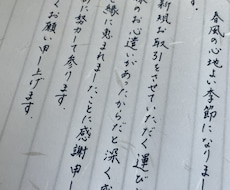 春風の心地よい季節になりま
す。
新規お取引をさせていただく運び
様のお心遣いがあったからだと深く感
縁に恵まれましたことに感謝申し
に努力して参ります。
くお願い申し上げます。